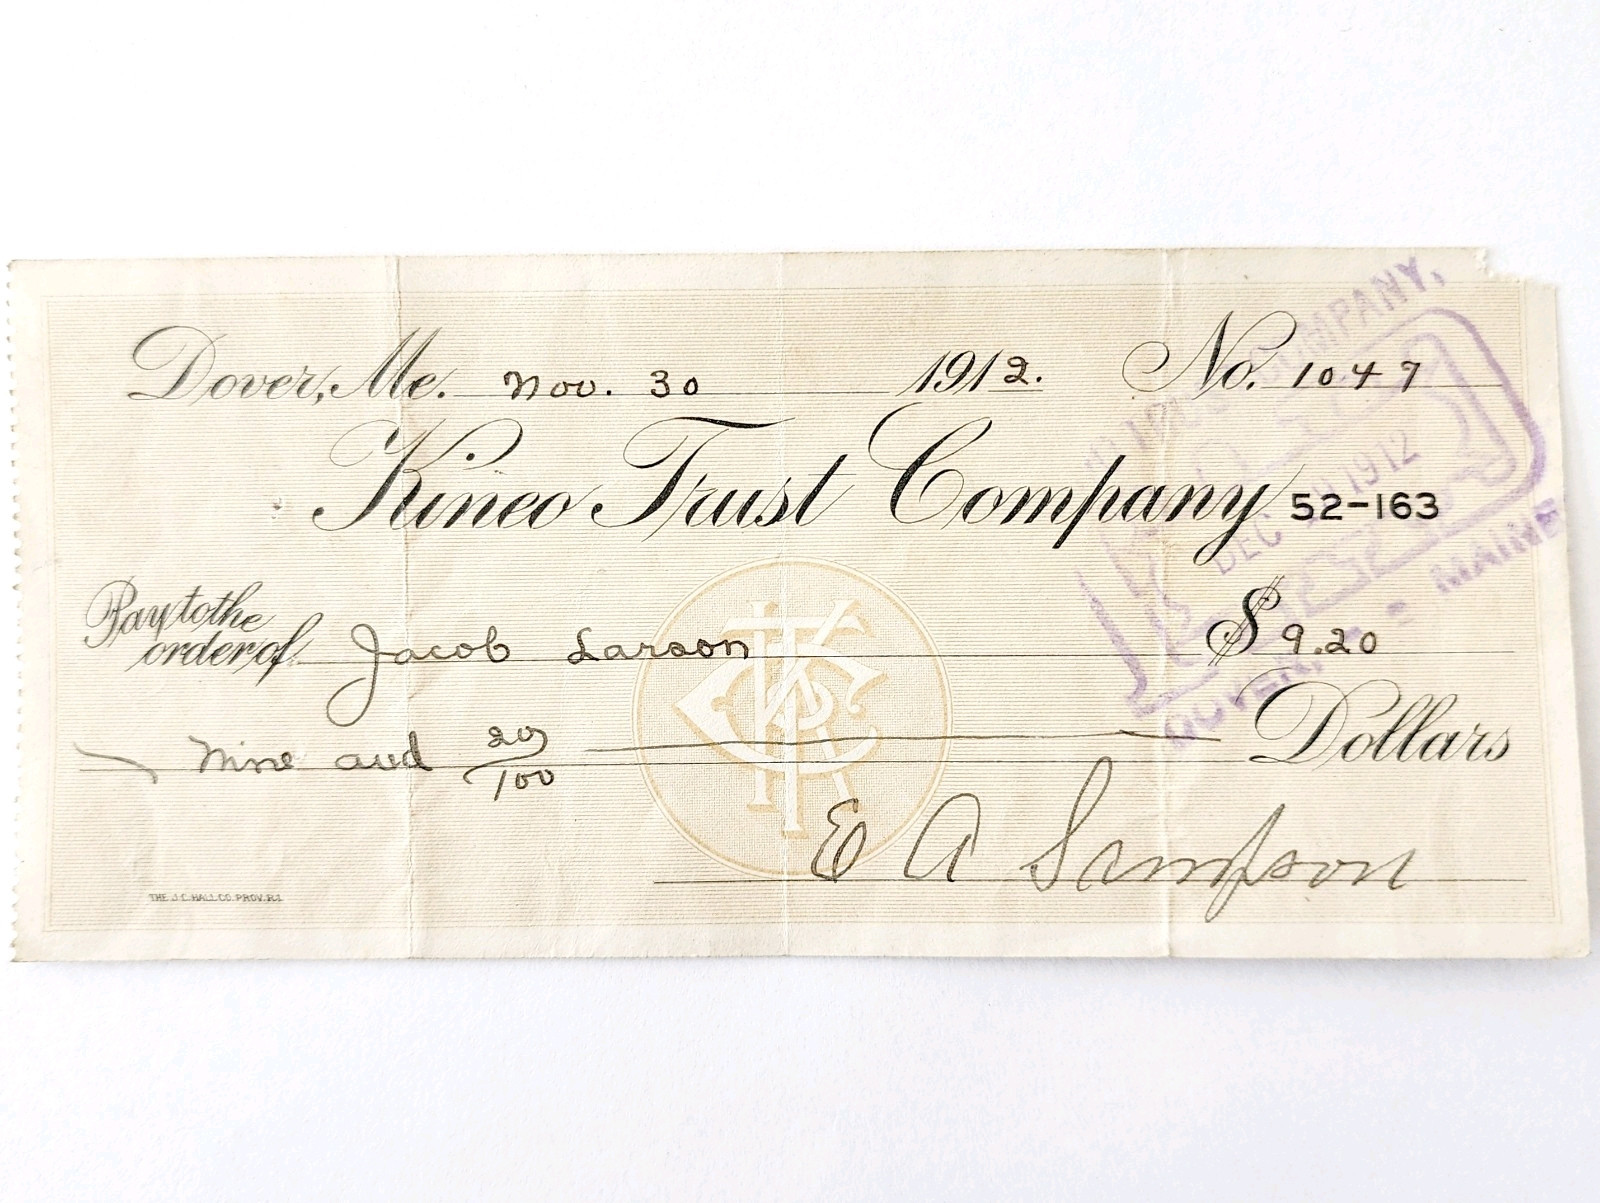 Dover, Me. Nov. 30 1912. No. 1047
Kineo Trust Company 52-163
Pay to the
order of Jacob Larson $9.20
Nine and 20/100 Dollars
E A Sampson
THE J.C. HALL CO. PROV. R.I.
COMPANY,
DEC 1912
DOVER, - MAINE